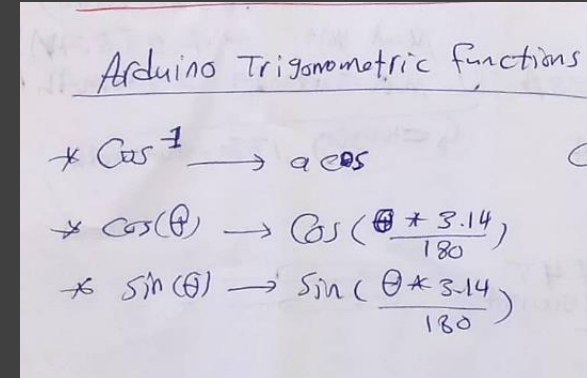 Arduino Trigonometric functions
* Cos⁻¹ → acos
* cos(θ) → Cos(θ * 3.14/180)
* sin(θ) → Sin(θ * 3.14/180)